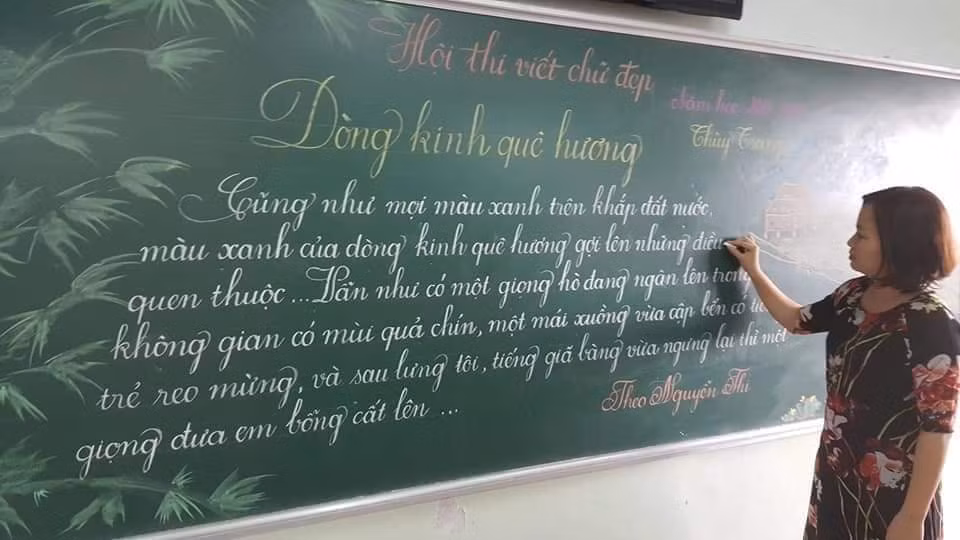 Hội thi viết chữ đẹp
Năm học
Dòng kinh quê hương
Thùy Trang
Cũng như mọi màu xanh trên khắp đất nước,
màu xanh của dòng kinh quê hương gợi lên những điều
quen thuộc...Vẫn như có một giọng hò đang ngân lên trong
không gian có mùi quả chín, một mái xuồng vừa cập bến có
trẻ reo mừng, và sau lưng tôi, tiếng giã bàng vừa ngưng lại thì một
giọng đưa em bổng cất lên ...
Theo Nguyễn Thi